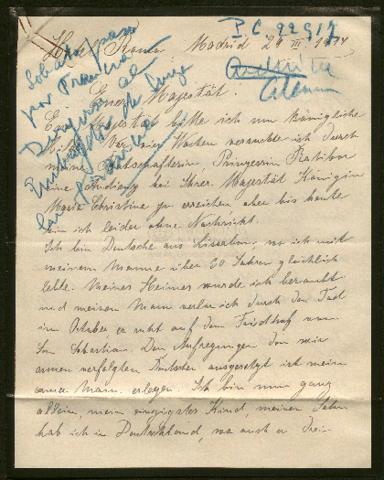 P C 92917
Hotel Roma. Madrid 24 III. 17
Alemán
Euer Majestät.
Majestät bitte ich um königliche
Vor vier Wochen versuchte ich durch
meine Botschafterin, Prinzessin Ratibor
eine Audienz bei Ihrer Majestät Königin
Marie Christine zu erreichen aber bis heute
bin ich leider ohne Nachricht.
Ich bin Deutsche aus Lissabon, wo ich mit
meinem Manne über 20 Jahren glücklich
lebte. Meines Heimes wurde ich beraubt
und meinen Mann verlor ich durch den Tod
im Oktober er ruht auf dem Friedhof von
San Sebastian. Den Aufregungen den wir
armen verfolgten Deutschen ausgesetzt ist mein
armer Mann erlegen. Ich bin nun ganz
allein, mein einzigstes Kind, meinen Sohn
hab ich in Deutschland, wo auch er